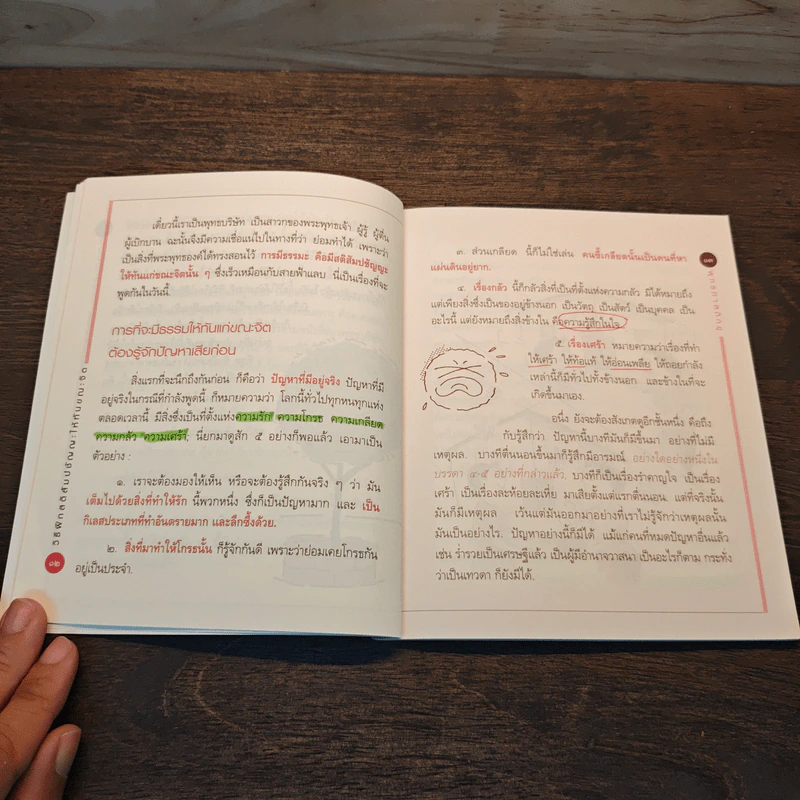 เดี๋ยวนี้เราเป็นพุทธบริษัท เป็นสาวกของพระพุทธเจ้า ผู้รู้ ผู้ตื่น
ผู้เบิกบาน ฉะนั้นจึงมีความเชื่อแน่ไปในทางที่ว่า ย่อมทำได้ เพราะว่า
เป็นสิ่งที่พระพุทธองค์ได้ทรงสอนไว้ การมีธรรมะ คือมีสติสัมปชัญญะ
ให้ทันแก่ขณะจิตนั้น ๆ ซึ่งเร็วเหมือนกับสายฟ้าแลบ นี่เป็นเรื่องที่จะ
พูดกันในวันนี้.
การที่จะมีธรรมให้ทันแก่ขณะจิต
ต้องรู้จักปัญหาเสียก่อน
สิ่งแรกที่จะนึกถึงกันก่อน ก็คือว่า ปัญหาที่มีอยู่จริง ปัญหาที่มี
อยู่จริงในกรณีที่กำลังพูดนี้ ก็หมายความว่า โลกนี้ทั่วไปทุกหนทุกแห่ง
ตลอดเวลานี้ มีสิ่งซึ่งเป็นที่ตั้งแห่งความรัก ความโกรธ ความเกลียด
ความกลัว ความเศร้า; นี่ยกมาดูสัก ๕ อย่างก็พอแล้ว เอามาเป็น
ตัวอย่าง :
๑. เราจะต้องมองให้เห็น หรือจะต้องรู้สึกกันจริง ๆ ว่า มัน
เต็มไปด้วยสิ่งที่ทำให้รัก นี้พวกหนึ่ง ซึ่งก็เป็นปัญหามาก และ เป็น
กิเลสประเภทที่ทำอันตรายมาก และลึกซึ้งด้วย.
๒. สิ่งที่มาทำให้โกรธนั้น ก็รู้จักกันดี เพราะว่าย่อมเคยโกรธกัน
อยู่เป็นประจำ.
วิธีฝึกสติสัมปชัญญะให้ทันขณะจิต
๑๒
๓. ส่วนเกลียด นี้ก็ไม่ใช่เล่น คนขี้เกลียดนั้นเป็นคนที่หา
แผ่นดินอยู่ยาก.
๔. เรื่องกลัว นี้ก็กลัวสิ่งที่เป็นที่ตั้งแห่งความกลัว มิได้หมายถึง
แต่เพียงสิ่งซึ่งเป็นของอยู่ข้างนอก เป็นวัตถุ เป็นสัตว์ เป็นบุคคล เป็น
อะไรนี้ แต่ยังหมายถึงสิ่งข้างใน คือความรู้สึกในใจ
๕. เรื่องเศร้า หมายความว่าเรื่องที่ทำ
ให้เศร้า ให้ท้อแท้ ให้อ่อนเพลีย ให้ถอยกำลัง
เหล่านี้ก็มีทั่วไปทั้งข้างนอก และข้างในที่จะ
เกิดขึ้นมาเอง.
อนึ่ง ยังจะต้องสังเกตดูอีกชั้นหนึ่ง คือถึง
กับรู้สึกว่า ปัญหานี้บางทีมันก็มีขึ้นมา อย่างที่ไม่มี
เหตุผล. บางทีตื่นนอนขึ้นมาก็รู้สึกมีอารมณ์ อย่างใดอย่างหนึ่งใน
บรรดา ๔-๕ อย่างที่กล่าวแล้ว. บางทีก็เป็นเรื่องรำคาญใจ เป็นเรื่อง
เศร้า เป็นเรื่องละห้อยละเหี่ย มาเสียตั้งแต่แรกตื่นนอน. แต่ที่จริงนั้น
มันก็มีเหตุผล เว้นแต่มันออกมาอย่างที่เราไม่รู้จักว่าเหตุผลนั้น
มันเป็นอย่างไร. ปัญหาอย่างนี้ก็มีได้ แม้แก่คนที่หมดปัญหาอื่นแล้ว
เช่น ร่ำรวยเป็นเศรษฐีแล้ว เป็นผู้มีอำนาจวาสนา เป็นอะไรก็ตาม กระทั่ง
ว่าเป็นเทวดา ก็ยังมีได้.
๑๓
พุทธทาสภิกขุ